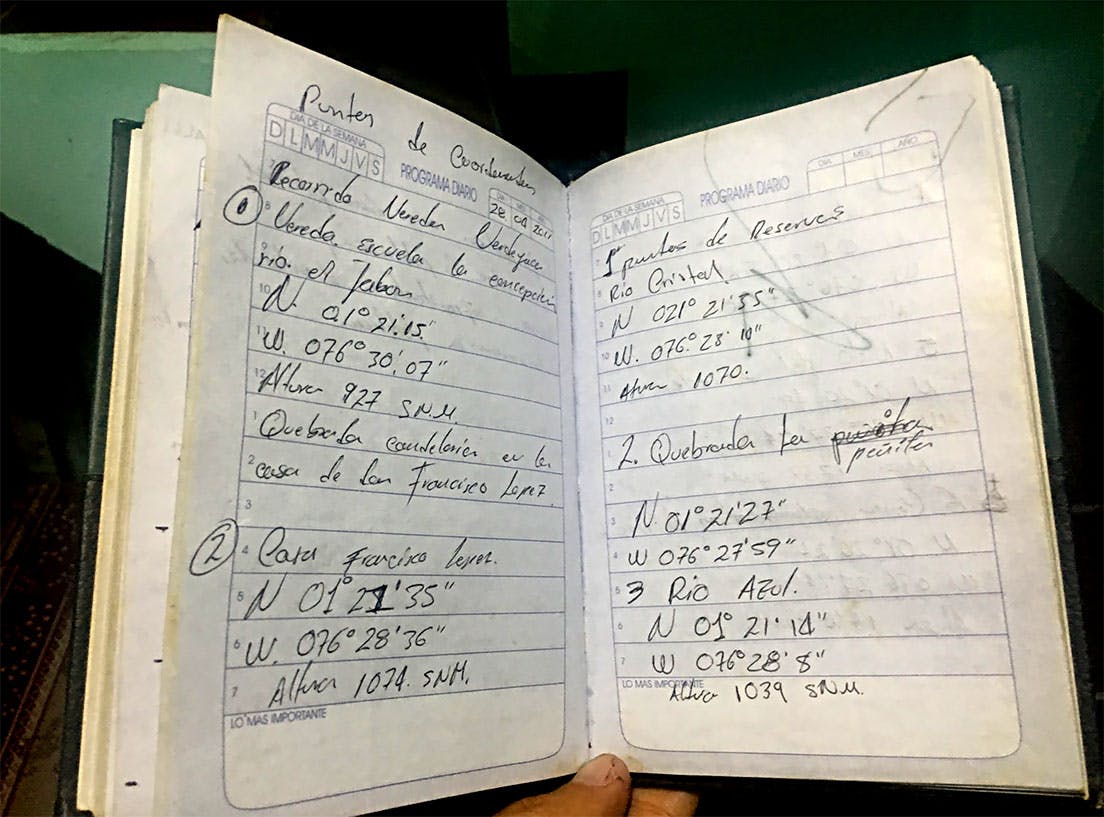 Puntos de Coordenadas
DIA DE LA SEMANA
D L M M J V S
PROGRAMA DIARIO
DIA MES AÑO
28 04 2011
7 Recorrido Vereda Verdeyaco
① 8 Vereda. escuela la concepción
9 rio. el Jabon
10 N 01° 21'.15"
11 W. 076° 30'. 07"
12 Altura 927 S.N.M
1 Quebrada candelaria en la
2 casa de Don Francisco Lopez
3
② 4 Casa Francisco Lopez.
5 N 01° 21' 35"
6 W. 076° 28' 36"
7 Altura 1074. SNM.
LO MAS IMPORTANTE
DIA DE LA SEMANA
D L M M J V S
PROGRAMA DIARIO
DIA MES AÑO
7 1 puntos de Reservas
8 Rio Cristal
9 N 021° 21' 55"
10 W. 076° 28' 10"
11 Altura 1070.
12
1 2. Quebrada La
peñita
2
3 N. 01° 21' 27"
4 W 076° 27' 59"
5 3 Rio AZul.
6 N 01° 21' 14"
7 W 076° 28' 8"
LO MAS IMPORTANTE
Altura 1039 SNM.